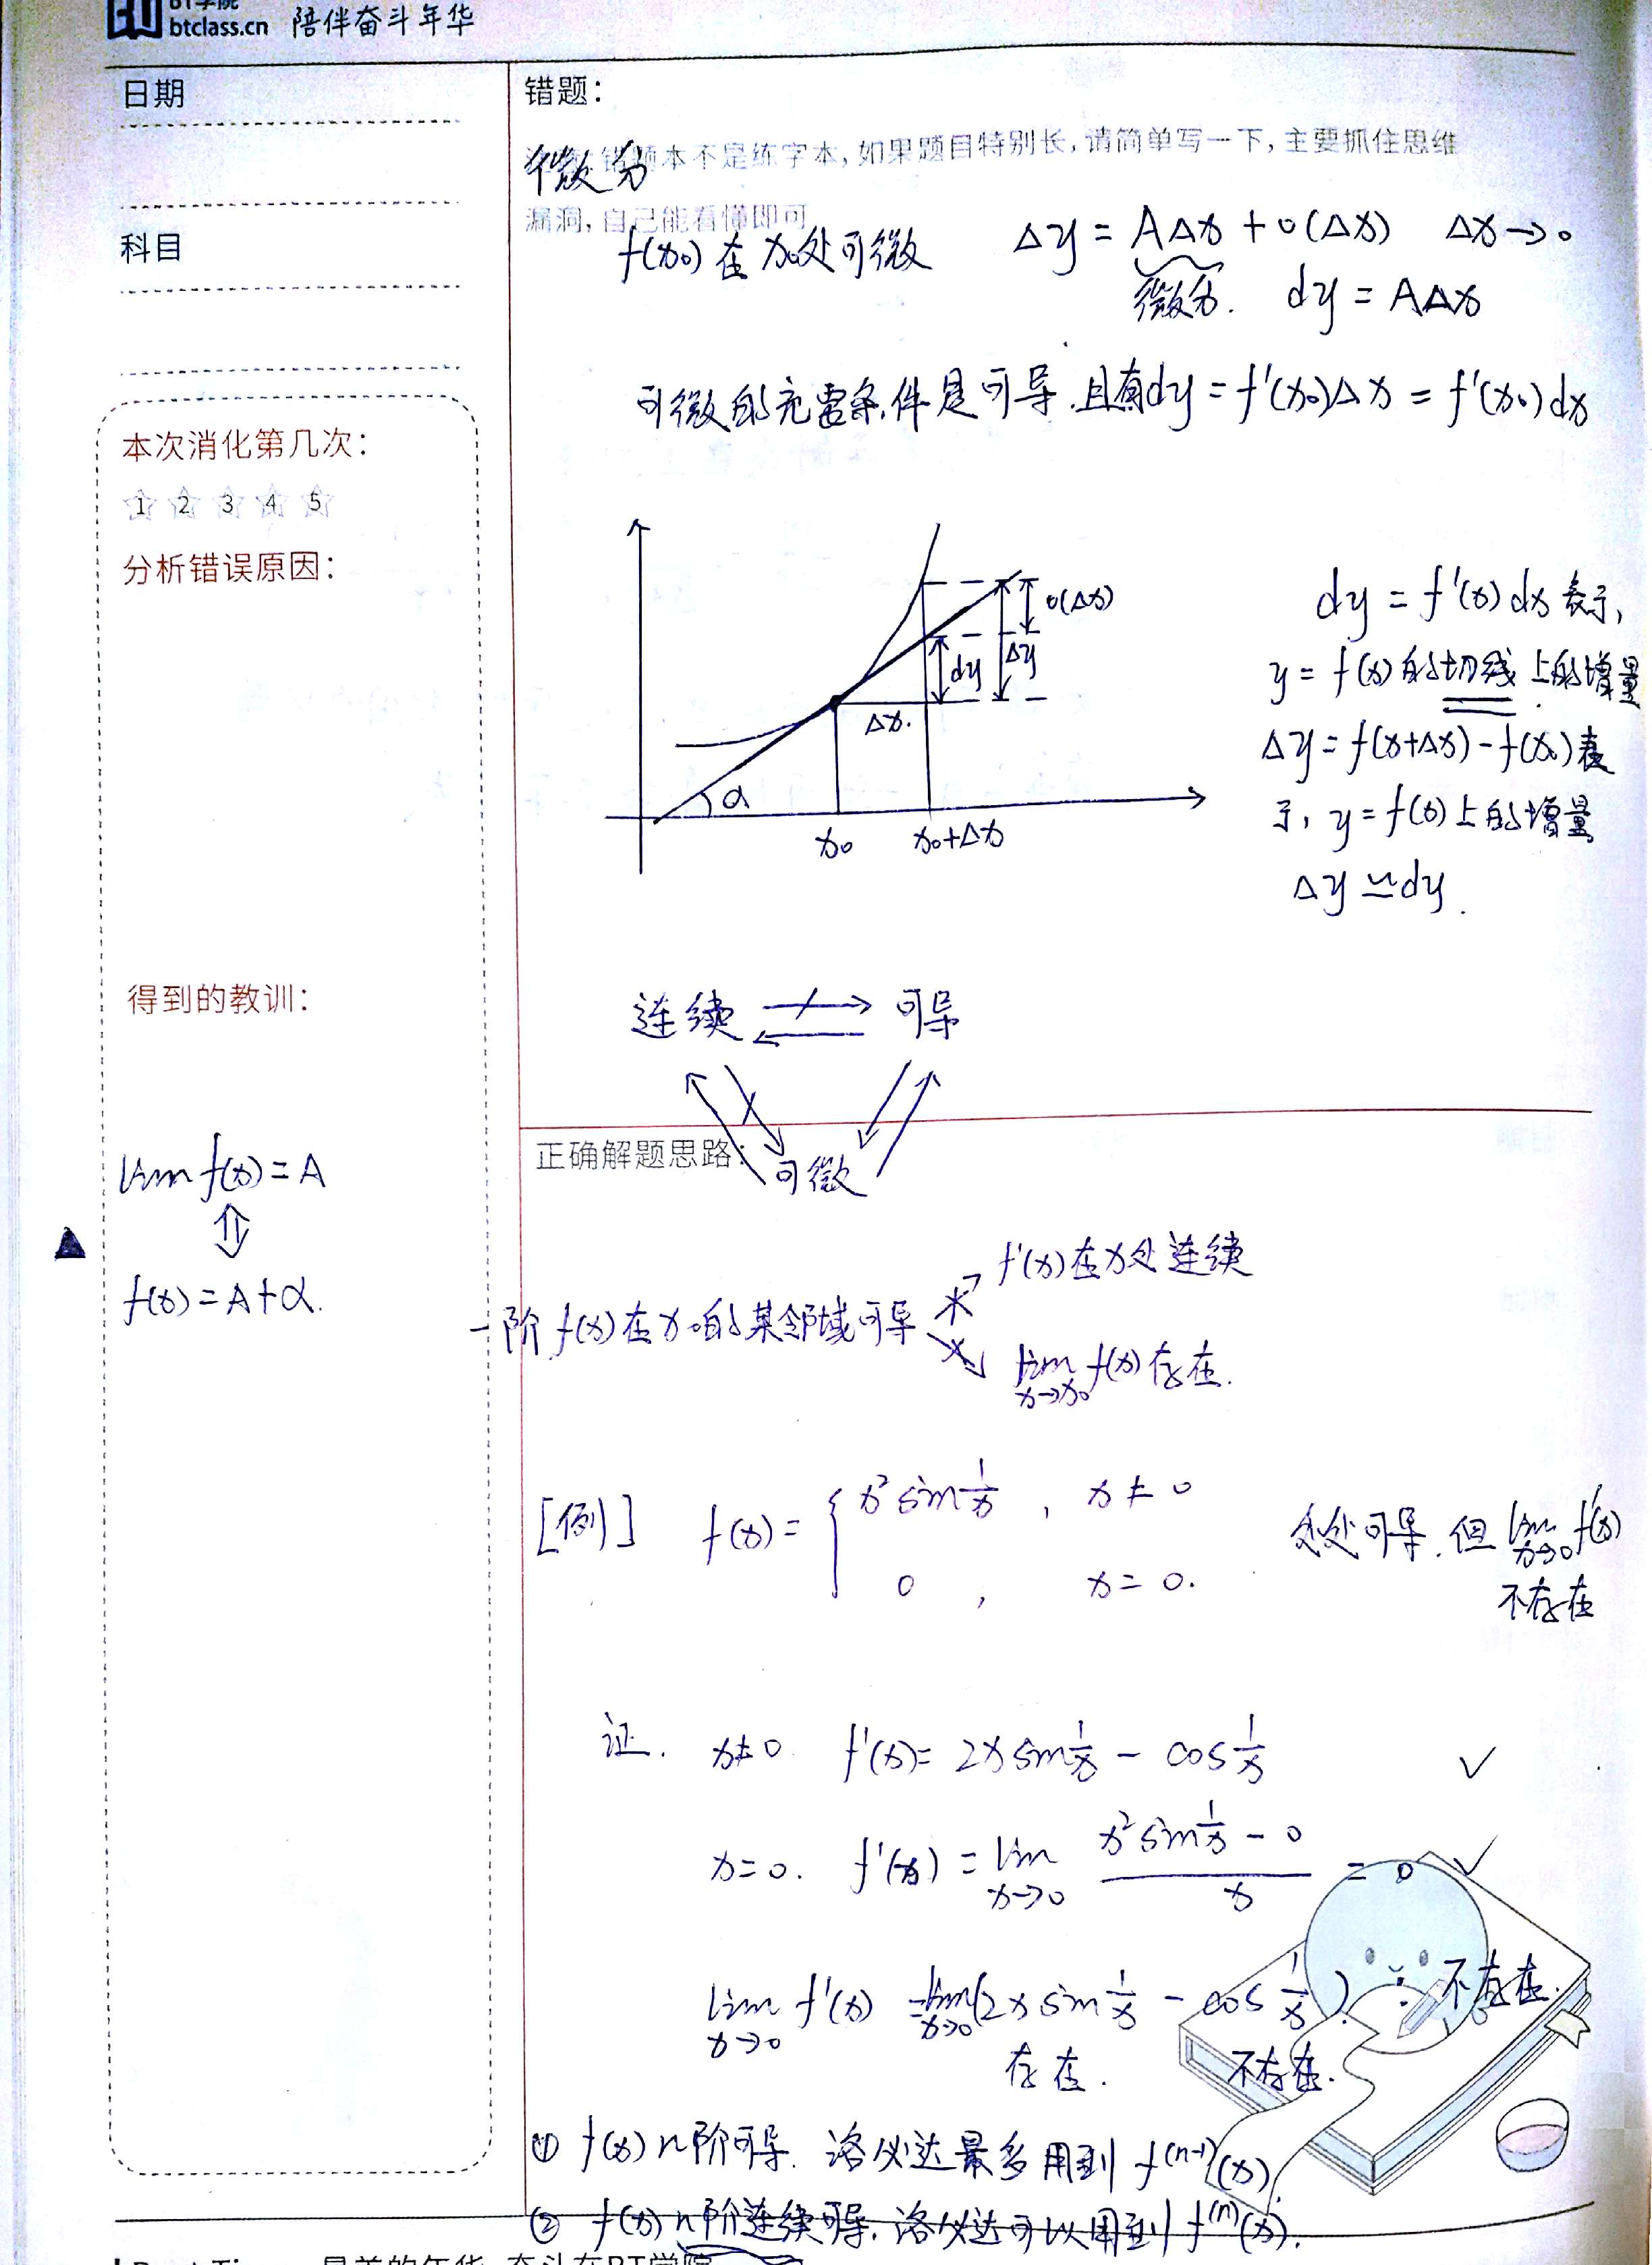 BT学院
btclass.cn 陪伴奋斗年华
日期
科目
本次消化第几次：
1 2 3 4 5
分析错误原因：
得到的教训：
lim f(x) = A
⇕
▲
f(x) = A + α.
错题：
错题本不是练字本，如果题目特别长，请简单写一下，主要抓住思维
漏洞，自己能看懂即可
微分
f(x₀) 在 x₀处可微 Δy = AΔx + o(Δx) Δx → 0
微分. dy = AΔx
可微的充要条件是可导.且有dy = f'(x₀)Δx = f'(x₀)dx
o(Δx)
dy Δy
Δx.
α
x₀ x₀+Δx
dy = f'(x) dx 表示,
y = f(x) 的切线上的增量
Δy = f(x+Δx) - f(x₀) 表
示, y = f(x) 上的增量
Δy ≃ dy.
连续 可导
正确解题思路：
可微
f'(x) 在x处连续
一阶 f(x) 在x₀的某邻域可导
lim f(x) 存在.
x→x₀
[例] f(x) = { x² sin 1/x , x ≠ 0
0 , x = 0.
处处可导. 但 lim f'(x)
x→0
不存在
证. x≠0 f'(x) = 2x sin 1/x - cos 1/x ✓
x=0. f'(x) = lim x→0 (x² sin 1/x - 0)/x = 0 ✓
lim x→0 f'(x) = lim x→0 (2x sin 1/x - cos 1/x) 不存在.
存在. 不存在.
① f(x) n阶可导. 洛必达最多用到 f⁽ⁿ⁻¹⁾(x).
② f(x) n阶连续可导. 洛必达可以用到 f⁽ⁿ⁾(x).